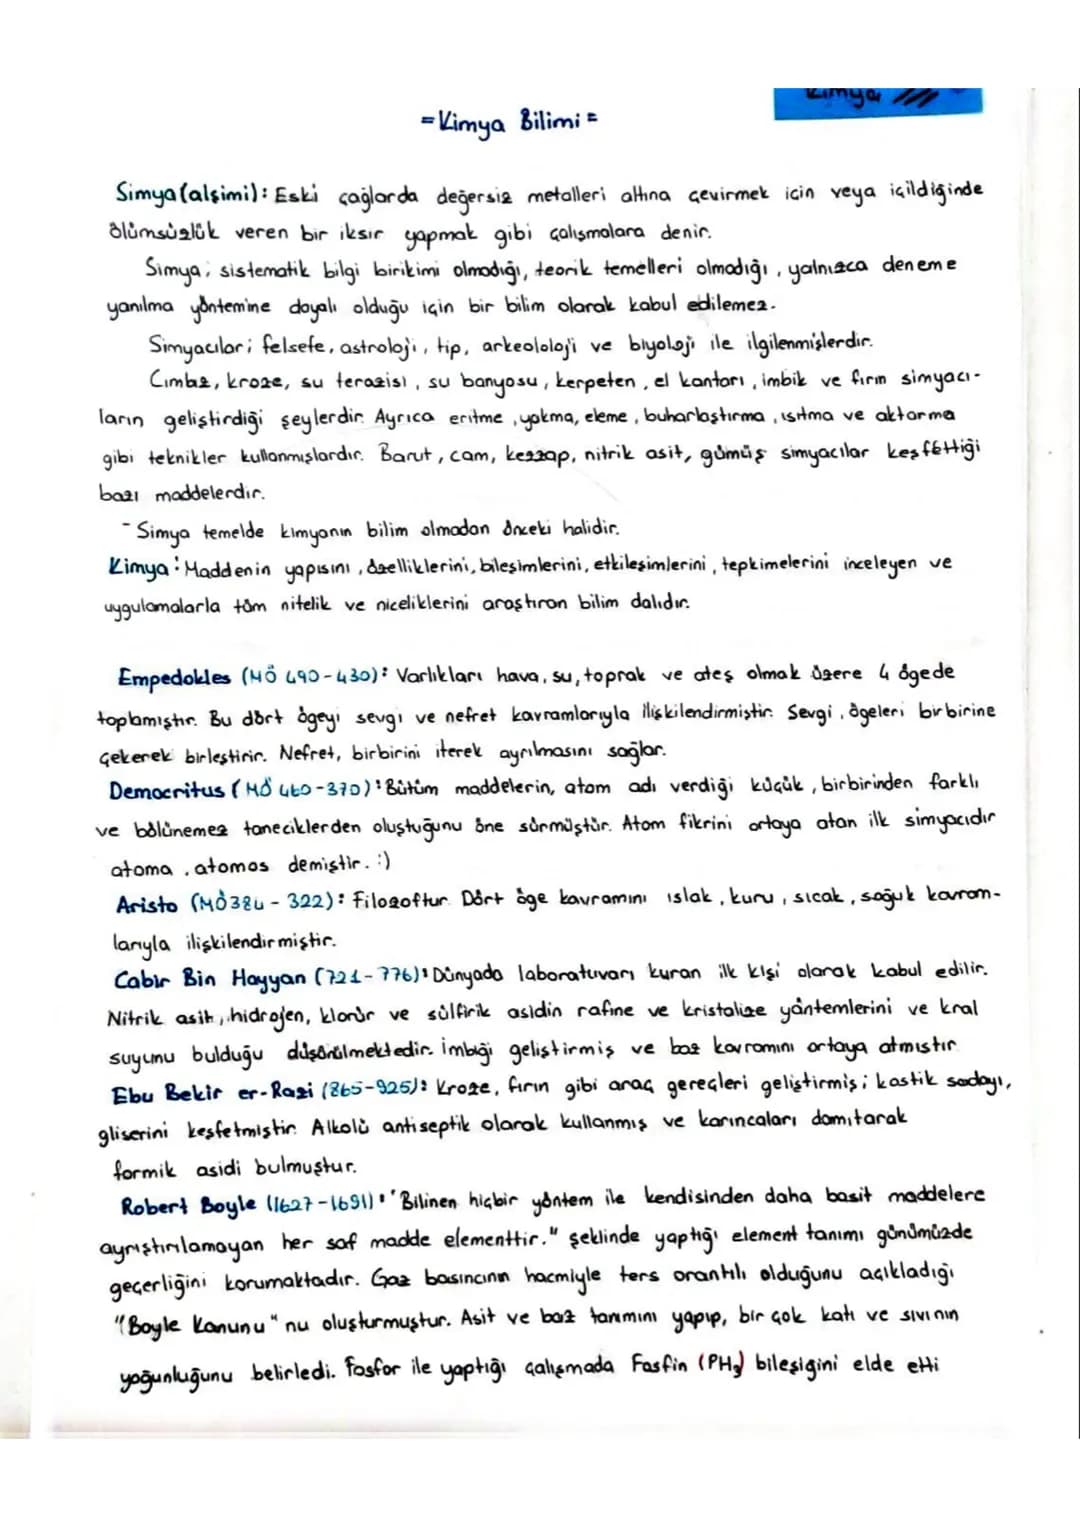 Kimya
=Kimya Bilimi=
Simya(alşimi): Eski çağlarda değersiz metalleri altına çevirmek için veya içildiğinde
ölümsüzlük veren bir iksir yapmak gibi çalışmalara denir.
Simya; sistematik bilgi birikimi olmadığı, teorik temelleri olmadığı, yalnızca deneme
yanılma yöntemine dayalı olduğu için bir bilim olarak kabul edilemez.
Simyacılar; felsefe, astroloji, tıp, arkeololoji ve biyoloji ile ilgilenmişlerdir.
Cımbız, kroze, su terazisi, su banyosu, kerpeten, el kantarı, imbik ve fırın simyacı-
ların geliştirdiği şeylerdir. Ayrıca eritme, yakma, eleme, buharlaştırma, ısıtma ve aktarma
gibi teknikler kullanmışlardır. Barut, cam, kezzap, nitrik asit, gümüş simyacılar keşfettiği
bazı maddelerdir.
- Simya temelde kimyanın bilim olmadan önceki halidir.
Kimya: Maddenin yapısını, özelliklerini, bileşimlerini, etkileşimlerini, tepkimelerini inceleyen ve
uygulamalarla tüm nitelik ve niceliklerini araştıran bilim dalıdır.
Empedokles (MÖ 490-430): Varlıkları hava, su, toprak ve ateş olmak üzere 4 ögede
toplamıştır. Bu dört ögeyi sevgi ve nefret kavramlarıyla ilişkilendirmiştir. Sevgi, ögeleri birbirine
çekerek birleştirir. Nefret, birbirini iterek ayrılmasını sağlar.
Democritus (MÖ 460-370): Bütüm maddelerin, atom adı verdiği küçük, birbirinden farklı
ve bölünemez taneciklerden oluştuğunu öne sürmüştür. Atom fikrini ortaya atan ilk simyacıdır
atoma, atomos demiştir. :)
Aristo (MÖ384 - 322): Filozoftur. Dört öge kavramını ıslak, kuru, sıcak, soğuk kavram-
larıyla ilişkilendirmiştir.
Cabir Bin Hayyan (721-776): Dünyada laboratuvarı kuran ilk kişi olarak kabul edilir.
Nitrik asit, hidrojen, klorür ve sülfirik asidin rafine ve kristalize yöntemlerini ve kral
suyunu bulduğu düşünülmektedir. İmbiği geliştirmiş ve baz kavramını ortaya atmıştır
Ebu Bekir er-Razi (865-925): Kroze, fırın gibi araç gereçleri geliştirmiş; kostik sodayı,
gliserini keşfetmiştir. Alkolü antiseptik olarak kullanmış ve karıncaları damıtarak
formik asidi bulmuştur.
Robert Boyle (1627-1691): 'Bilinen hiçbir yöntem ile kendisinden daha basit maddelere
ayrıştırılamayan her saf madde elementtir." şeklinde yaptığı element tanımı günümüzde
geçerliğini korumaktadır. Gaz basıncının hacmiyle ters orantılı olduğunu açıkladığı
"Boyle Kanunu" nu oluşturmuştur. Asit ve baz tanımını yapıp, bir çok katı ve sıvının
yoğunluğunu belirledi. Fosfor ile yaptığı çalışmada Fosfin (PH₃) bileşiğini elde etti